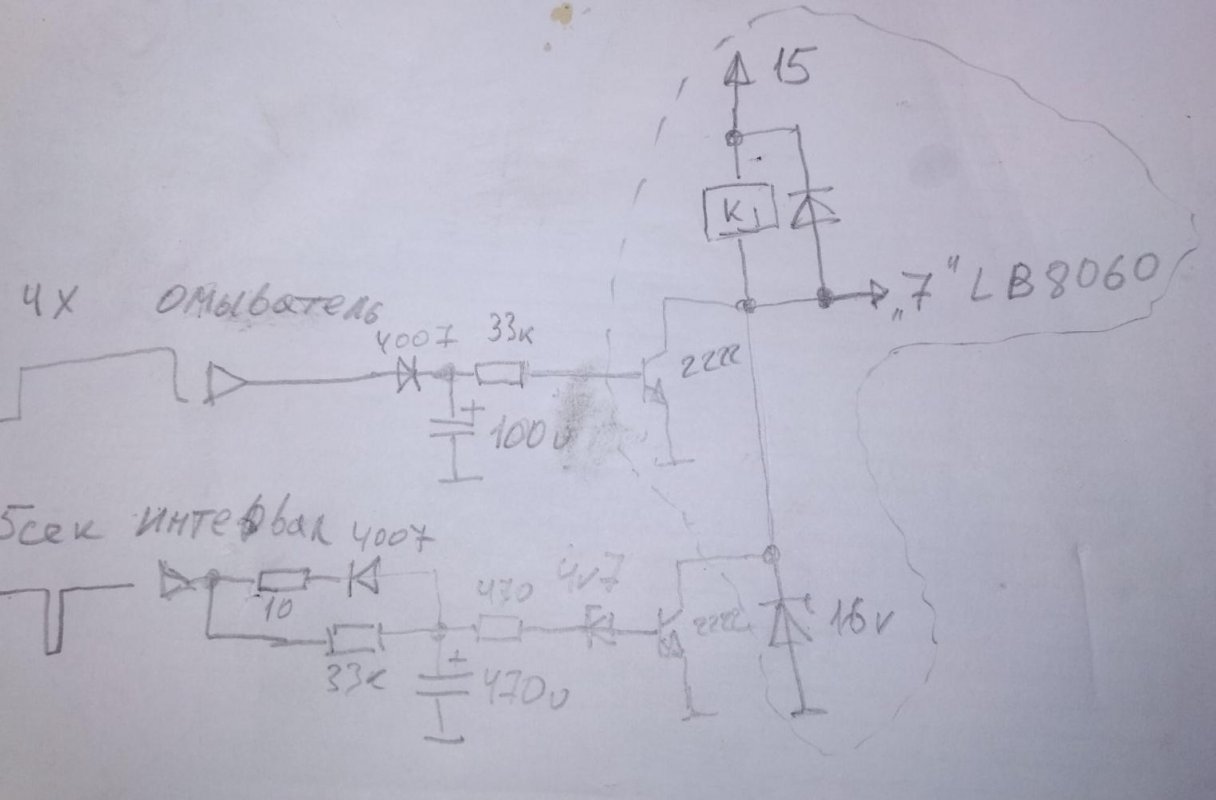 15
K1
„7“ LB8060
4X ОМЫВАТЕЛЬ
4007
33к
2222
+
100u
5сек ИНТЕРВАЛ
4007
10
470
4v7
2222
16v
33к
+
470u